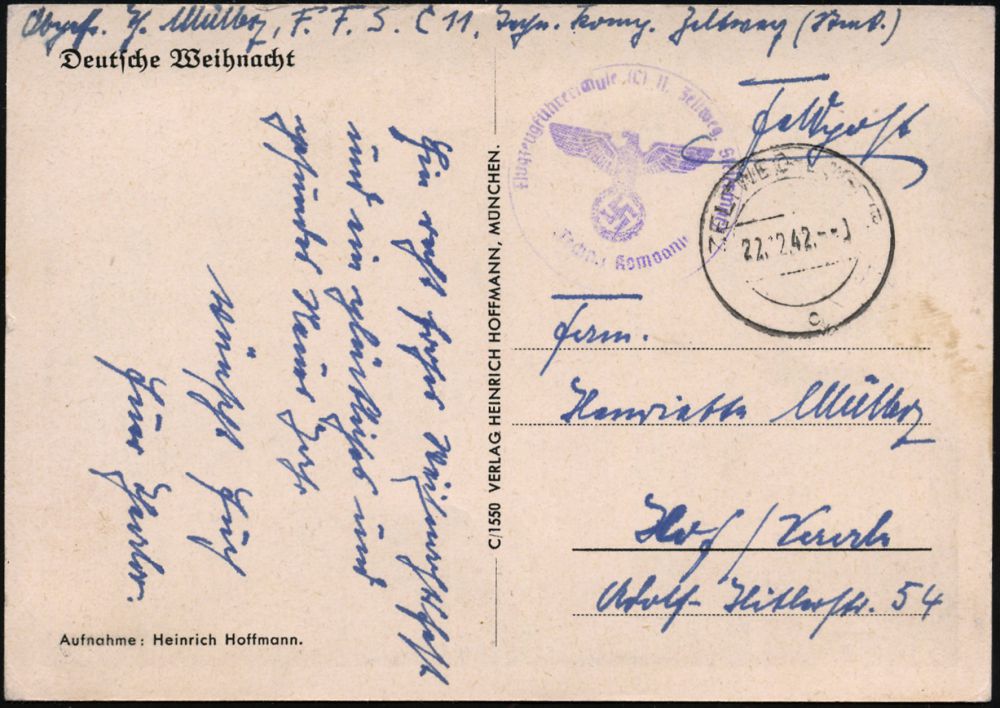 Obgefr. H. Müller, F. F. S. C 11, Techn. Komp. Zeltweg (Stmk.)
Deutsche Weihnacht
Ein recht frohes Weihnachtsfest
und ein glückliches und
gesundes Neues Jahr
wünscht Euch
Euer
Aufnahme: Heinrich Hoffmann.
C/1550 VERLAG HEINRICH HOFFMANN, MÜNCHEN.
Flugzeugführerschule (C) 11 Zeltweg,
Techn. Kompanie
Feldpost
ZELTWEG
22.12.42
Fam.
Henriette Müller
Hof / Saale
Adolf-Hitlerstr. 54